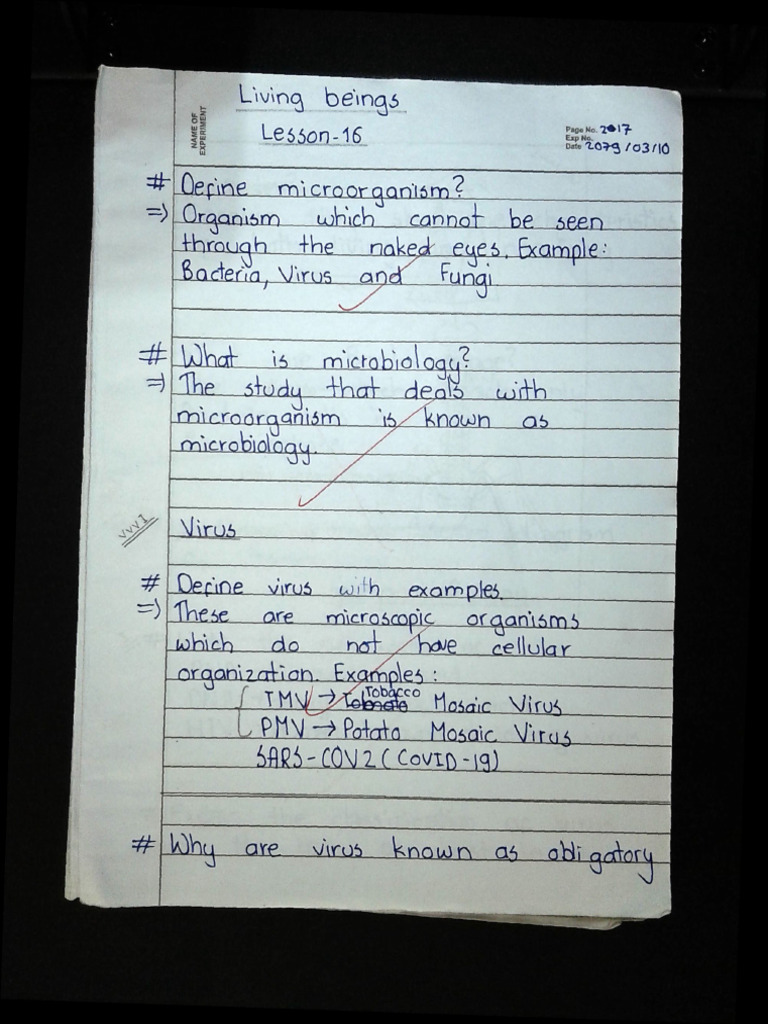 Living beings
Lesson-16
NAME OF
EXPERIMENT
Page No. 2017
Exp No.
Date 2079/03/10
# Define microorganism?
=> Organism which cannot be seen
through the naked eyes. Example:
Bacteria, Virus and Fungi
# What is microbiology?
=> The study that deals with
microorganism is known as
microbiology.
VVVI
Virus
# Define virus with examples.
=> These are microscopic organisms
which do not have cellular
organization. Examples:
TMV → Tobacco Mosaic Virus
PMV → Potato Mosaic Virus
SARS-COV2 (COVID-19)
# Why are virus known as obligatory